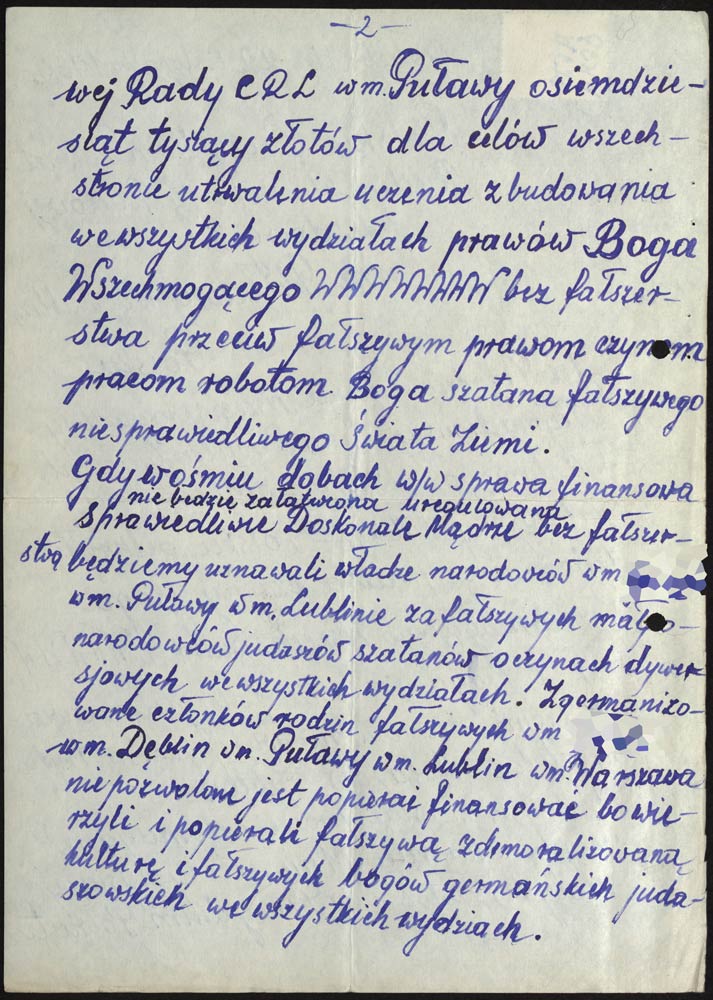 –2–
wej Rady CRL w m. Puławy osiemdzie-
siąt tysięcy złotów dla celów wszech-
stronie utrwalenia uczenia zbudowania
we wszystkich wydziałach prawów Boga
Wszechmogącego WWWWWWW bez fałszer-
stwa przeciw fałszywym prawom czynom
pracom robotom Boga szatana fałszywego
niesprawiedliwego Świata Ziemi.
Gdy w ośmiu dobach w/w sprawa finansowa
nie będzie załatwiona uregulowana
Sprawiedliwie Doskonale Mądrze bez fałszer-
stwa będziemy uznawali władze narodowców w m
w m. Puławy w m. Lublinie za fałszywych
narodowców judaszów szatanów o czynach dywer-
sjowych we wszystkich wydziałach. Zgermanizo-
wane członków rodzin fałszywych w m
w m. Dęblin w m. Puławy w m. Lublin w m. Warszawa
nie pozwolom jest popierai finansować bo wie-
rzyli i popierali fałszywą zdemoralizowaną
kulturę i fałszywych bogów germańskich juda-
szowskich we wszystkich wydziach.